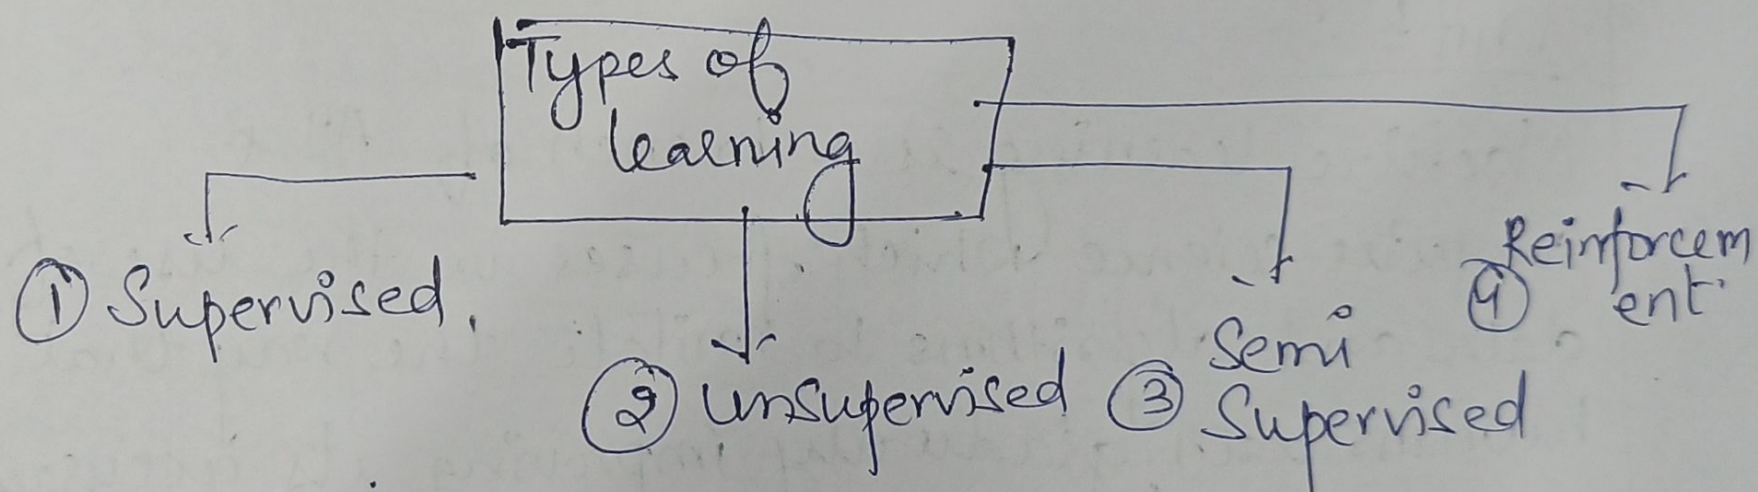 Types of
learning
① Supervised.
② unsupervised
③ Semi
Supervised
④ Reinforcem
ent